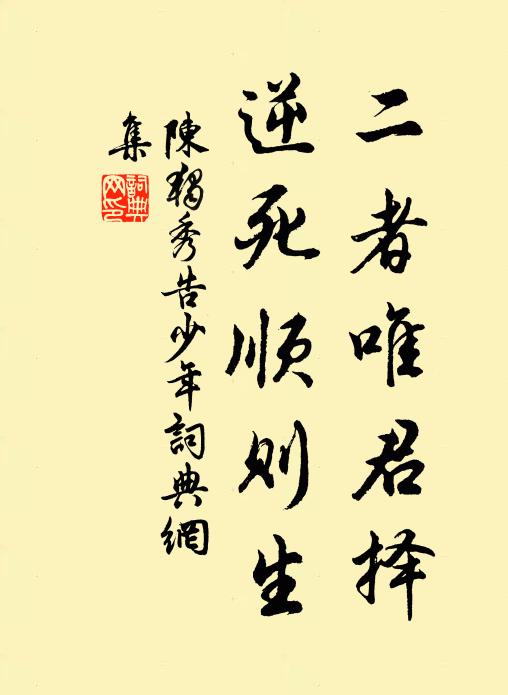 二者唯君择
逆死顺则生
陳獨秀告少年詞典網
集
詞典网印